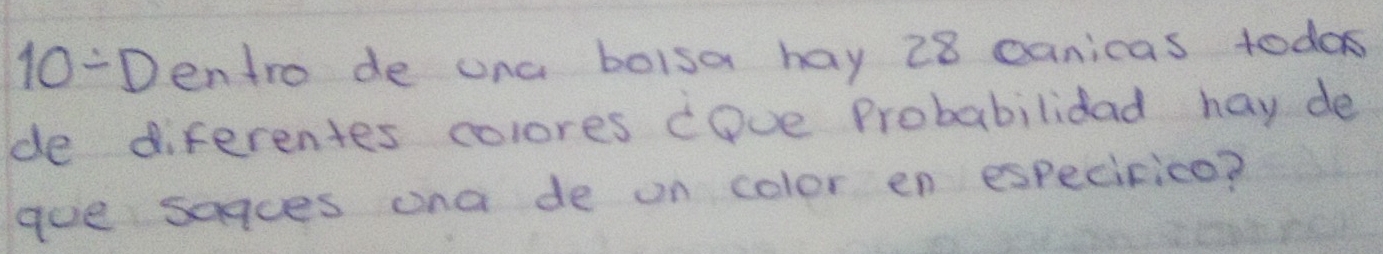 10-Dentro de una bolsa hay 28 canicas todas
de diferentes colores ¿Que Probabilidad hay de
que saques una de un color en especifico?